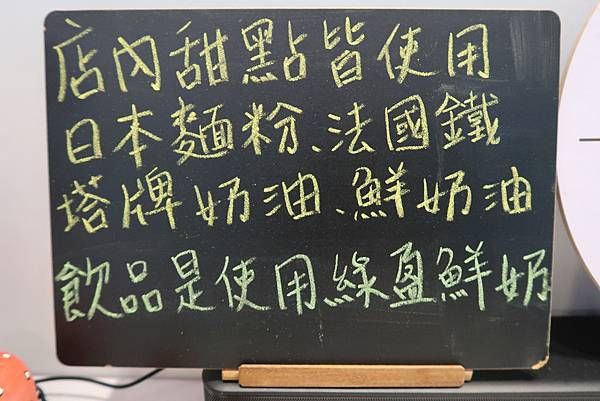 店內甜點皆使用
日本麵粉、法國鐵
塔牌奶油、鮮奶油
飲品是使用綠盈鮮奶